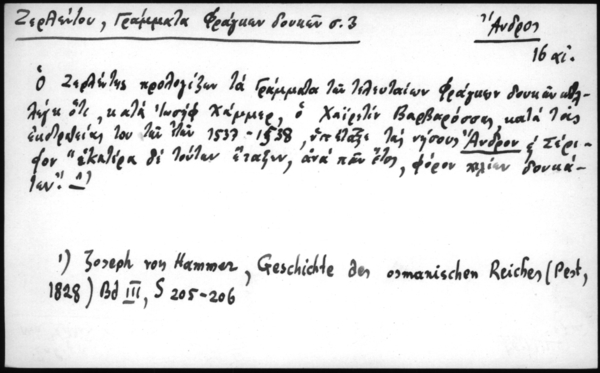 Ζερλέντου, Γράμματα Φράγκων δουκῶν σ. 3
Ἄνδρος
16 αἰ.
Ὁ Ζερλέντης προλογίζων τὰ Γράμματα τῶν τελευταίων Φράγκων δουκῶν
λέγει ὅτι, κατὰ Ἰωσὴφ Χάμμερ, ὁ Χαϊρεντὶν Βαρβαρόσσας, κατὰ τὰς
ἐκστρατείας του τῶν ἐτῶν 1537-1538, ὑπέταξε τὰς νήσους Ἄνδρον & Σέρι-
φον "ἑκατέρᾳ δὲ τούτων ἔταξεν, ἀνὰ πᾶν ἔτος, φόρον χιλίων δουκά-
των". 1)
1) Joseph von Hammer, Geschichte des osmanischen Reiches (Pest,
1828) Bd III, S 205-206